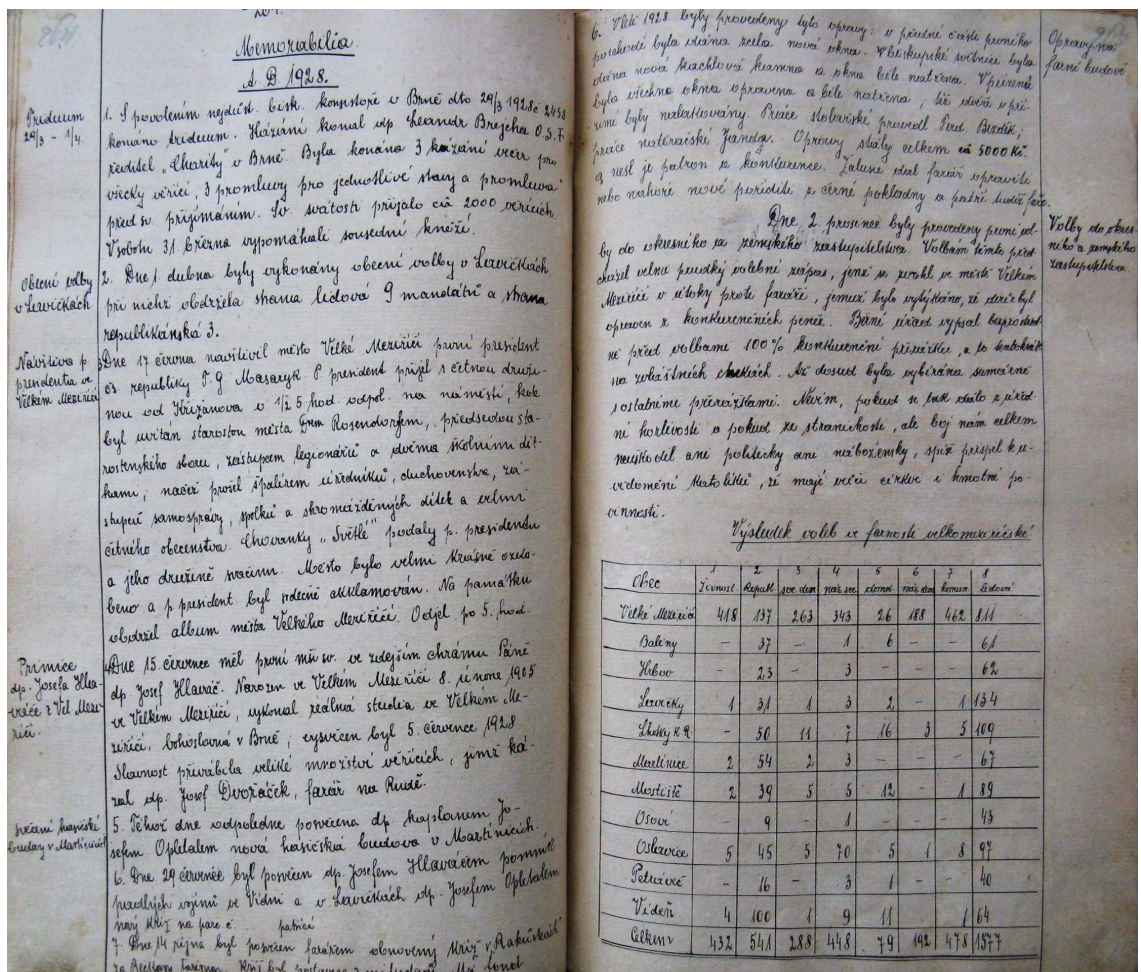 Memorabilia
A. D 1928.
Triduum
29/3 - 1/4
1. S povolením nejdůst. bisk. konsistoře v Brně dto 29/3 1928 č 2458
konáno triduum. Kázání konal dp Leandr Brejcha O.S.F.
ředitel „Charity“ v Brně. Byla konána 3 kázání večer pro
všecky věřící, 3 promluvy pro jednotlivé stavy a promluva
před sv. přijímáním. Sv. svátosti přijalo cca 2000 věřících.
V sobotu 31. března vypomáhali sousední kněží.
Obecní volby
v Lavičkách
2. Dne 1. dubna byly vykonány obecní volby v Lavičkách
při nichž obdržela strana lidová 9 mandátů a strana
republikánská 3.
Návštěva p.
presidenta ve
Velkém Meziříčí
3. Dne 17 června navštívil město Velké Meziříčí první president
čs. republiky T. G. Masaryk. P. president přijel s četnou druži-
nou od Křižanova v 1/2 5 hod odpol. na náměstí, kde
byl uvítán starostou města Rosendorfem, předsedou sta-
rostenského sboru, zástupcem legionářů a dvěma školními dít-
kami, načež prošel špalírem úředníků, duchovenstva, zá-
stupců samosprávy, spolků a shromážděných dítek a velmi
četného obecenstva. Chovanky „Světlé“ podaly p. presidentu
a jeho družině svačinu. Město bylo velmi krásně ozdo-
beno a p president byl srdečně akklamován. Na památku
obdržel album města Velkého Meziříčí. Odjel po 5. hod.
Primice
dp. Josefa Hla-
váče z Vel. Mezi-
říčí.
4. Dne 15. července měl první mši sv. ve zdejším chrámu Páně
dp. Josef Hlaváč. Narozen ve Velkém Meziříčí 8. února 1905
ve Velkém Meziříčí, vykonal reálná studia ve Velkém Me-
ziříčí, bohoslovná v Brně, vysvěcen byl 5. července 1928
Slavnost přivábila veliké množství věřících, jimž ká-
zal dp. Josef Dvořáček, farář na Rudě.
Svěcení hasičské
budovy v Martinicích
5. Téhož dne odpoledne posvěcena dp. kaplanem Jo-
sefem Opletalem nová hasičská budova v Martinicích.
6. Dne 29 července byl posvěcen dp. Josefem Hlaváčem pomník
padlých vojínů ve Vídni a v Lavičkách dp. Josefem Opletalem
nový kříž na parc č. patřící
7 Dne 14 října byl posvěcen farářem obnovený kříž v Rakůvkách
6. V létě 1928 byly provedeny tyto opravy: v přední části prvního
poschodí byla dána zcela nová okna. V biskupské světnici byla
dána nová kachlová kamna a okna bíle natřena. V přízemí
byla všechna okna opravena a bíle natřena, též dveře v pří-
zemí byly nalakovány. Práce stolařské provedl Ferd Bezděk,
práce natěračské Janda. Opravy stály celkem cca 5000 Kč.
a nesl je patron a konkurence. Žaluzie dal farář opraviti
nebo nahoře nové poříditi z černé pokladny a patří tudíž faře.
Opravy na
farní budově
Dne 2. prosince byly provedeny první vol-
by do okresního a zemského zastupitelstva. Volbám těmto před-
cházel velmi prudký volební zápas, jenž se zvrhl ve městě Velkém
Meziříčí v útoky proti faráři, jemuž bylo vytýkáno, že dvůr byl
opraven z konkurenčních peněz. Berní úřad vypsal bezprostřed-
ně před volbami 100% konkurenční přirážku, a to tentokrát
na zvláštních chekách. Až dosud byla vybírána sumárně
s ostatními přirážkami. Nevím, pokud se tak stalo z úřed-
ní horlivosti a pokud ze stranickosti, ale boj nám celkem
neuškodil ani politicky ani nábožensky, spíš přispěl k u-
vědomění katolíků, že mají vůči církvi i hmotné po-
vinnosti.
Volby do okres-
ního a zemského
zastupitelstva.
Výsledek voleb ve farnosti velkomeziříčské
1 2 3 4 5 6 7 8
Obec Živnost Republ. soc dem nár. soc domov nár. dem komun lidová
Velké Meziříčí 418 137 263 343 26 188 462 811
Baliny - 37 - 1 6 - - 61
Hrbov - 23 - 3 - - - 62
Lavičky 1 31 1 3 2 - 1 134
Lhotky k. R. - 50 11 7 16 3 5 109
Martinice 2 54 2 3 - - - 67
Mostiště 2 39 5 5 12 - 1 89
Osové - 9 - 1 - - - 43
Oslavice 5 45 5 70 5 1 8 97
Petráveč - 16 - 3 1 - - 40
Vídeň 4 100 1 9 11 1 64
Celkem 432 541 288 448 79 192 478 1577